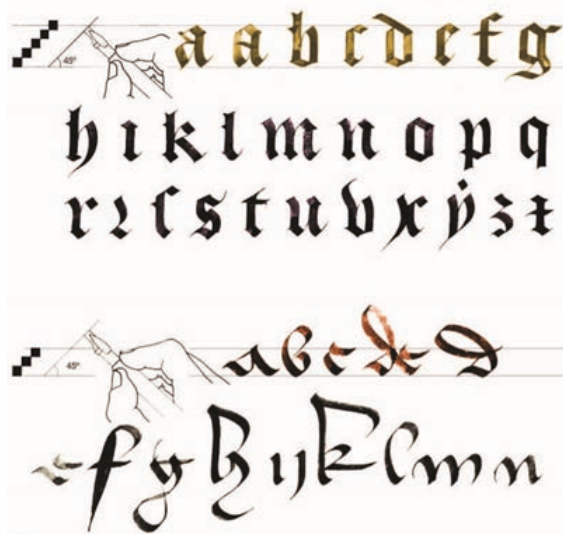 45° a a b c d e f g
h ı k l m n o p q
r ꝛ ſ s t u v x ẏ z ꝛ
45° a b c d d
e f g h ij k l m n